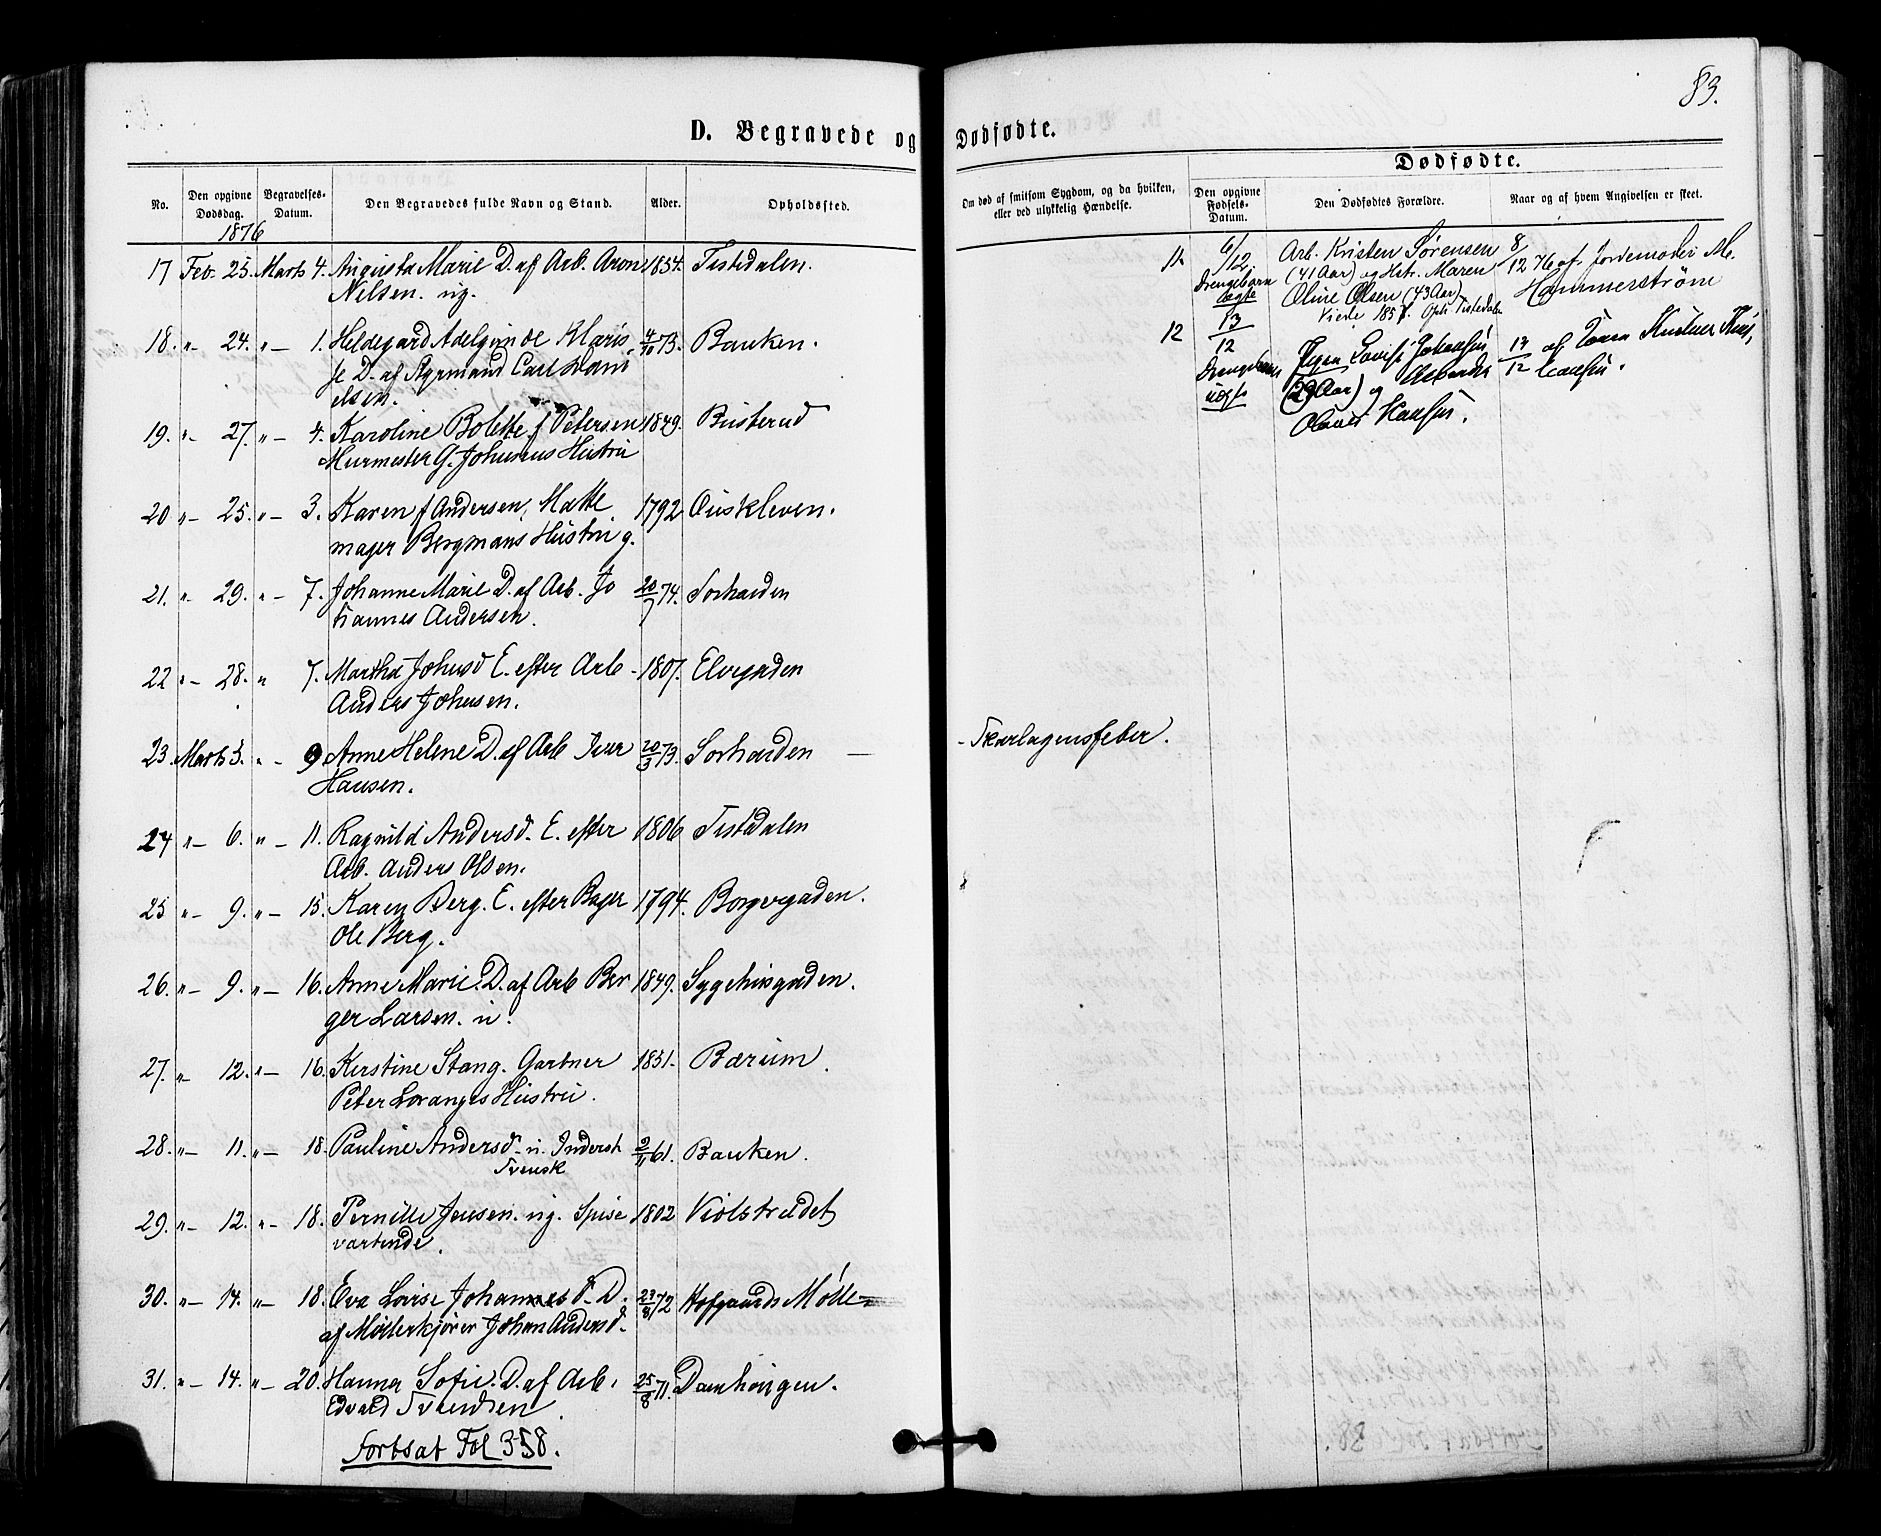 83.
D. Begravede og Dødfødte.
No.
Den opgivne Dødsdag.
Begravelses-Datum.
Den Begravedes fulde Navn og Stand.
Alder.
Opholdsted.
1876
17 Feb. 25. Marts 4. Augusta Marie D. af Arb. Aron 1854. Tistedalen.
Nilsen. ug.
18. " 24. " 1. Hildegard Adelgunde Klaris 4/10 73. Banken.
se D. af Styrmand Carl Dani
elsen.
19. " 27. " 4. Karoline Bolette f Petersen 1849. Busterud
Murmester G. Johnsens Hustru
20 " 25. " 3. Karen f Andersen, Matte 1792
mager Bergmans Hustru g.
21. " 29. " 7. Johanne Marie D. af Arb. Jo 20/7 74. Sorhauden
hannes Andersen.
22 " 28. " 7. Martha Johnsd E. efter Arb 1807. Elvegaden
Anders Johnsen.
23. Marts 3. " 9 Anne Helene D. af Arb Iver 20/3 73. Sorhauden — Skarlagensfeber.
Hansen.
24 " 6. " 11. Ragnild Andersd. E. efter 1806 Tistdalen
Arb. Anders Olsen.
25 " 9. " 15. Karen Berg. E. efter Bager 1794. Borgergaden.
Ole Berg.
26. " 9. " 16. Anne Marie. D. af Arb Ber 1849. Sygehusgaden.
ger Larsen. u.
27. " 12. " 16. Kerstine Stang. Gartner 1831. Bærum.
Peter Loranges Hustru.
28. " 11. " 18. Pauline Andersd. u. Inderst 2/11 61. Banken.
Svensk
29. " 12. " 18. Pernille Jensen. ug. Spise 1802 Violstrædet
vartinde.
30. " 14. " 18. Eva Lovise Johannesd. D. 23/8 72 Hofgaards Mølle
af Møllerkjører Johan Andersd.
31. " 14. " 20. Hanna Sofie. D. af Arb. 25/8 71. Damhaugen.
Edvard Svendsen.
Fortsat Fol 358.
Om død af smitsom Sygdom, og da hvilken,
eller ved ulykkelig Hændelse.
Dødfødte.
Den opgivne Fødsels-Datum.
Den Dødfødtes Forældre.
Naar og af hvem Angivelsen er skeet.
11 6/12 Arb. Kristen Sørensen 8/12 76 af Jordemoder M.
Drengebarn (41 Aar) og Hstr. Maren Hammerstrøm
ægte Oline Olsen (43 Aar)
Viede 1857. Oph. Tistedalen
12 13/12 Pigen Lovise Johansen 13/12 af
Drengebarn (29 Aar) og Arbeider
uægte Hansen.